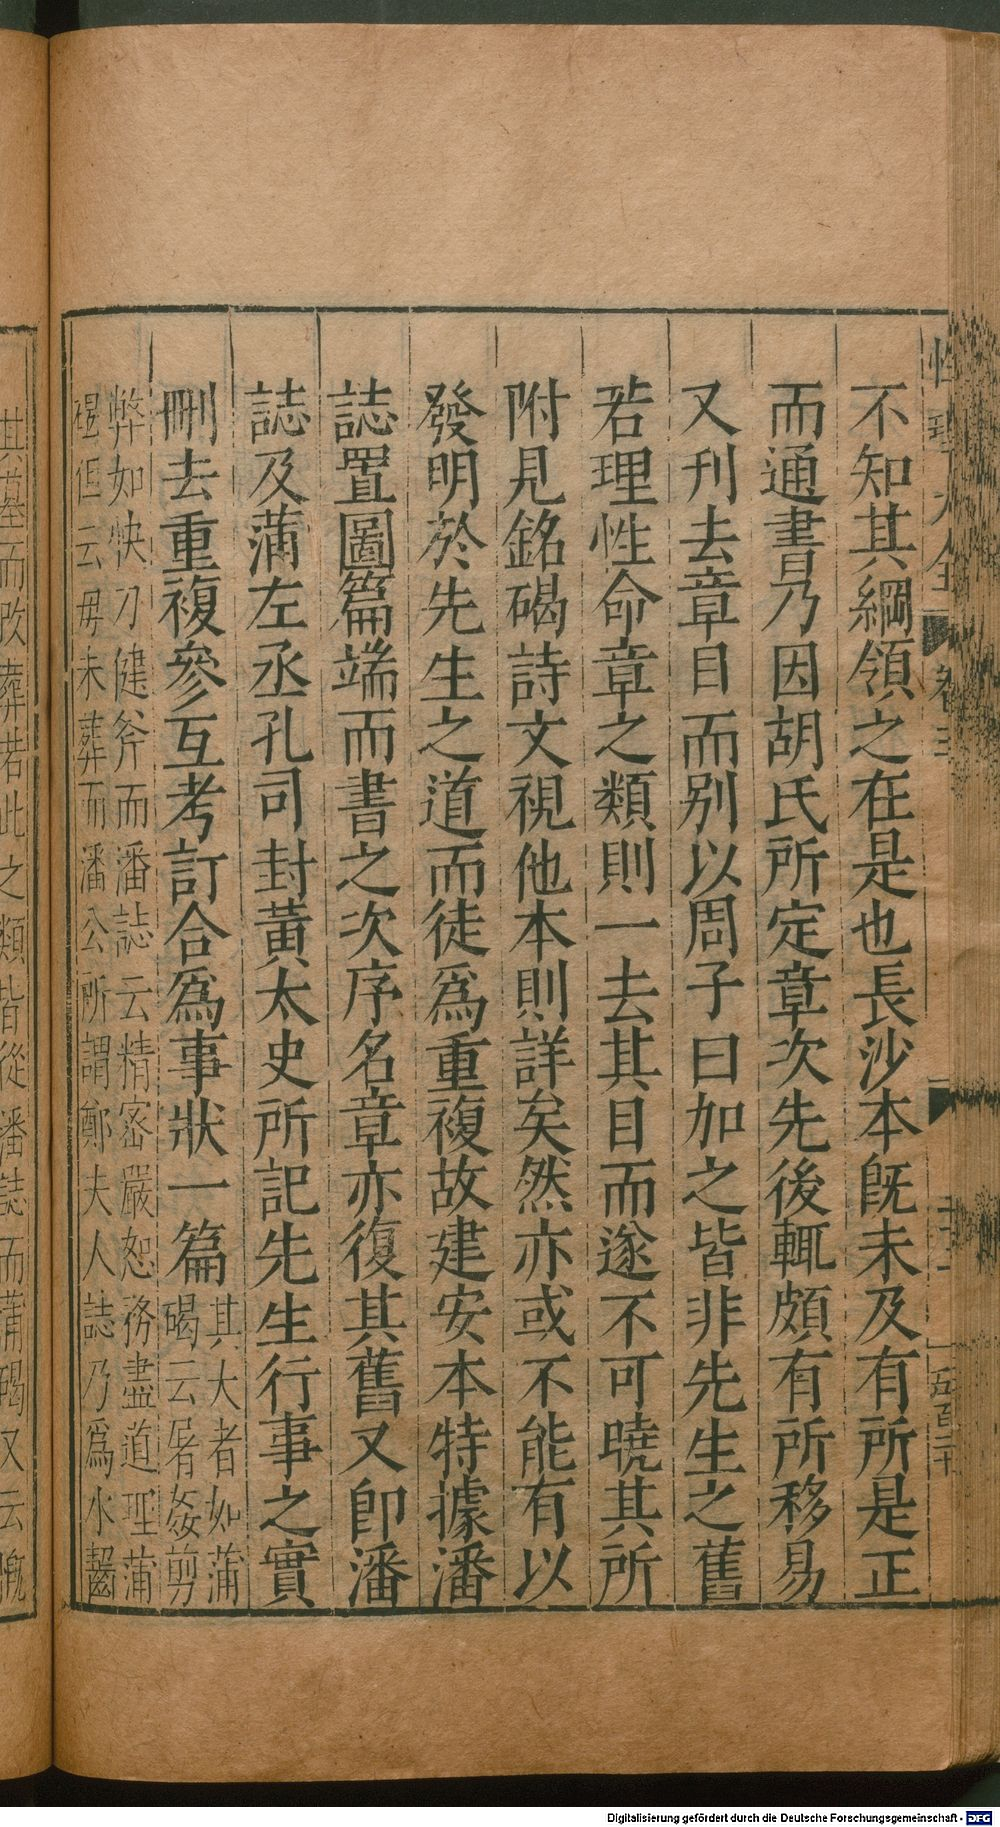 性理大全 卷之三
不知其綱領之在是也長沙本旣未及有所是正
而通書乃因胡氏所定章次先後輒頗有所移易
又刋去章目而别以周子曰加之皆非先生之舊
若理性命章之類則一去其目而遂不可曉其所
附見銘碣詩文視他本則詳矣然亦或不能有以
發明於先生之道而徒爲重複故建安本特據潘
誌置圖篇端而書之次序名章亦復其舊又卽潘
誌及蒲左丞孔司封黃太史所記先生行事之實
刪去重複參互考訂合爲事狀一篇
其大者如蒲
碣云屠姦剪
弊如快刀健斧而潘誌云精密嚴恕務盡道理蒲
碣但云毋未葬而潘公所謂鄭夫人誌乃爲水齧
其墓而改葬若此之類皆從潘誌而蒲碣又云慨
Digitalisierung gefördert durch die Deutsche Forschungsgemeinschaft - DFG